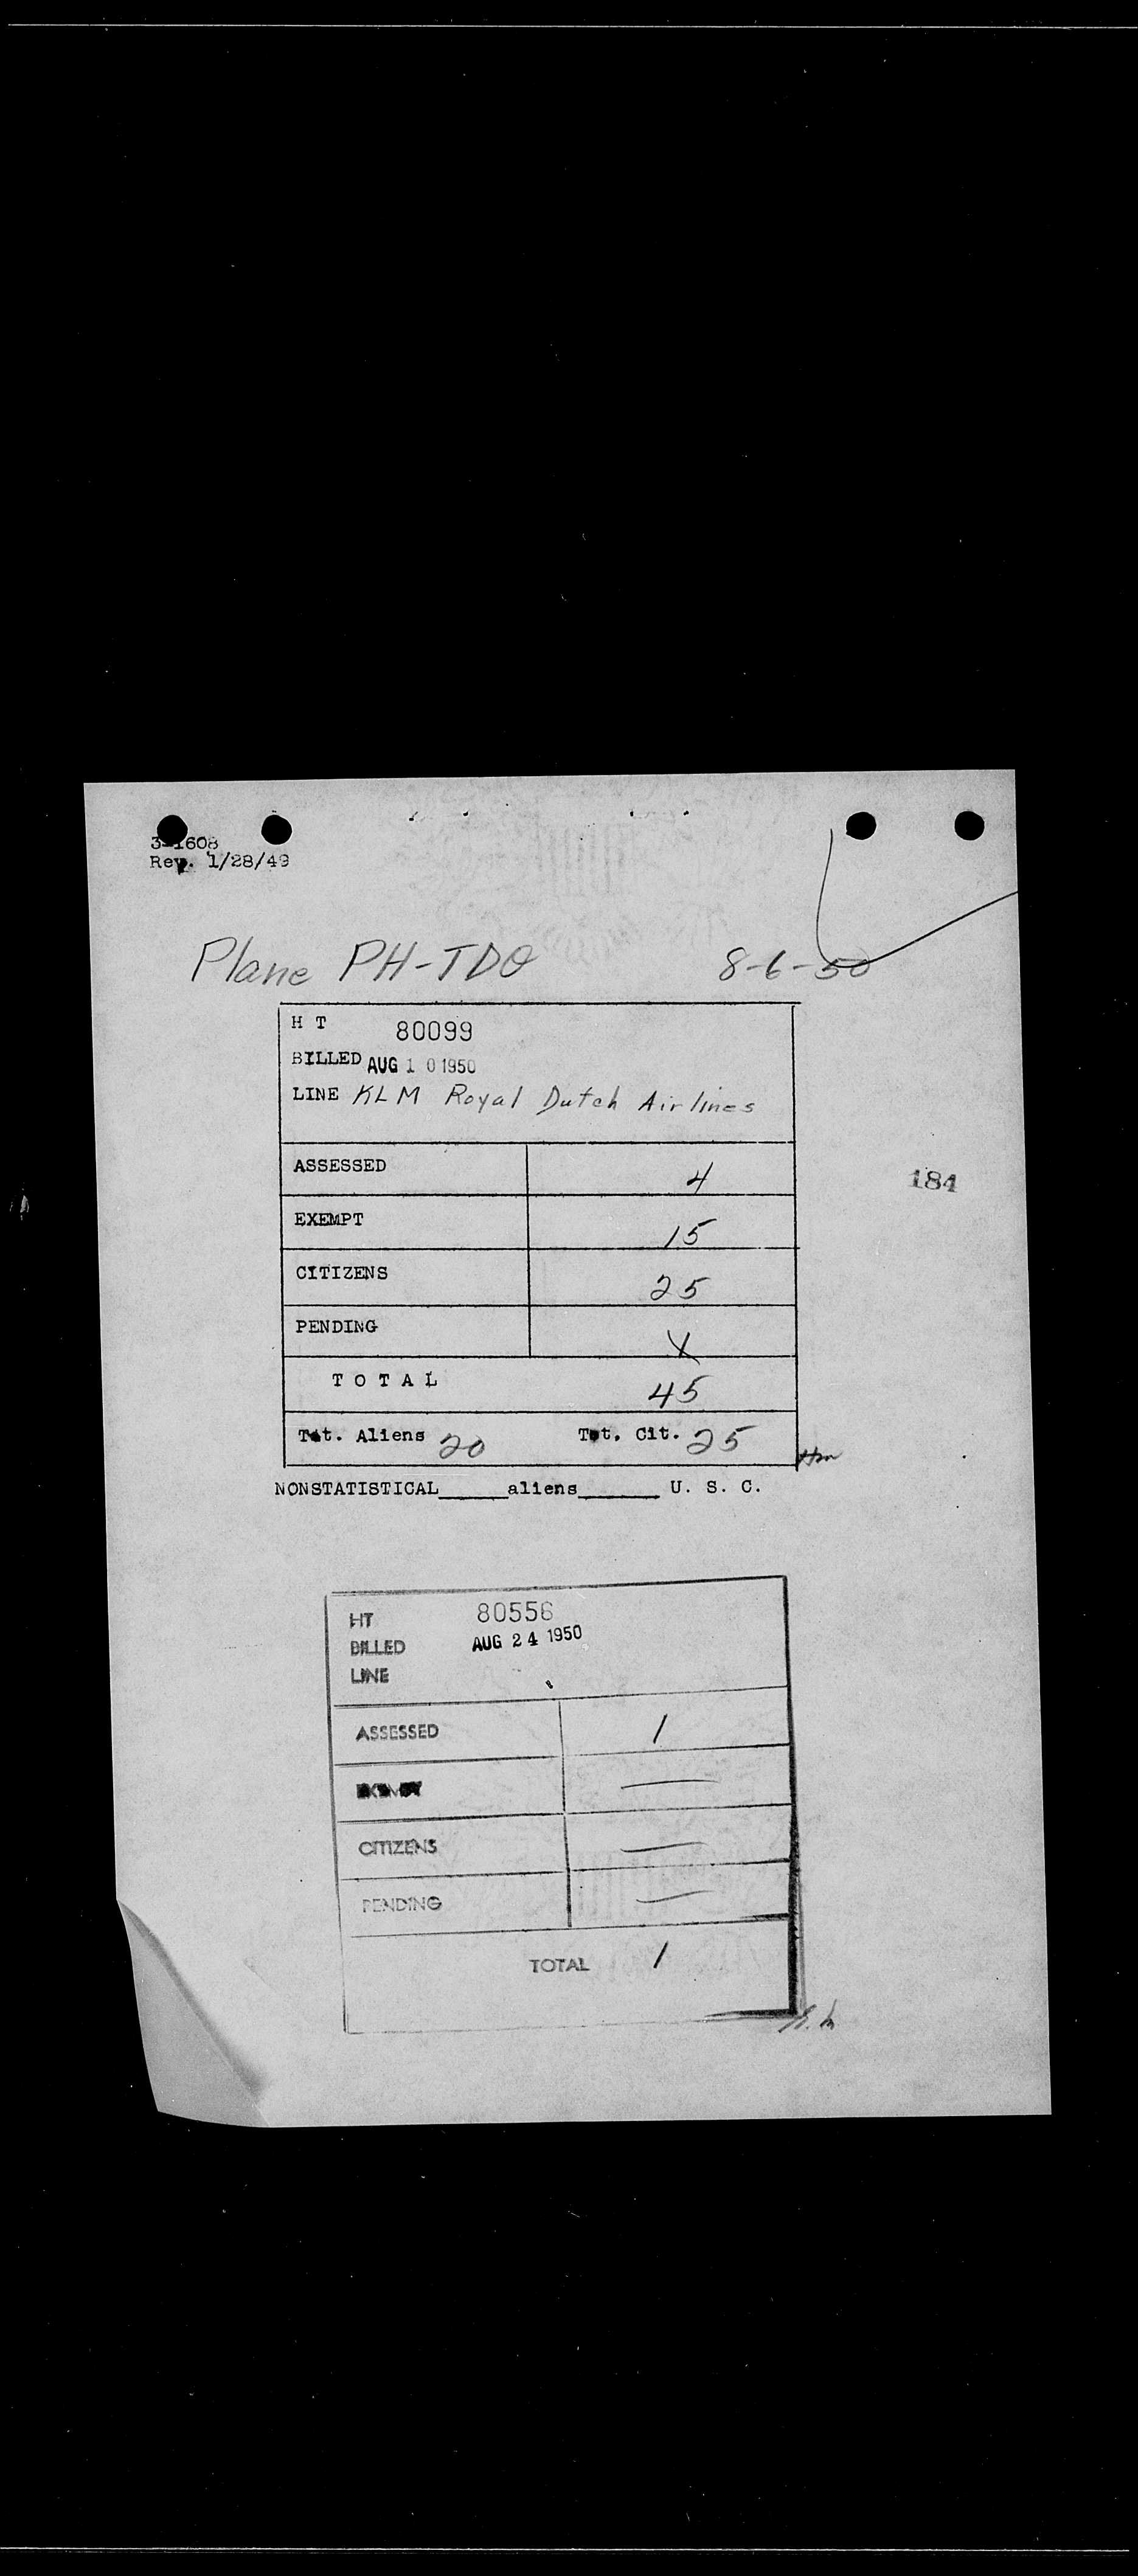 3-1608
Rev. 1/28/49
Plane PH-TDO 8-6-50
H T 80099
BILLED AUG 10 1950
LINE KLM Royal Dutch Airlines
ASSESSED 4
184
EXEMPT 15
CITIZENS 25
PENDING X
T O T A L 45
Tot. Aliens 20 Tot. Cit. 25
NONSTATISTICAL_____aliens______ U. S. C.
HT 80556
BILLED AUG 24 1950
LINE
ASSESSED 1
EXEMPT —
CITIZENS —
PENDING —
TOTAL 1